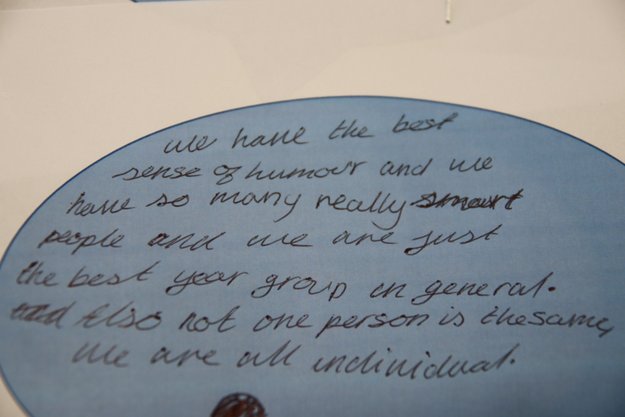 we have the best
sense of humour and we
have so many really smart
people and we are just
the best year group in general.
and Also not one person is the same,
we are all individual.